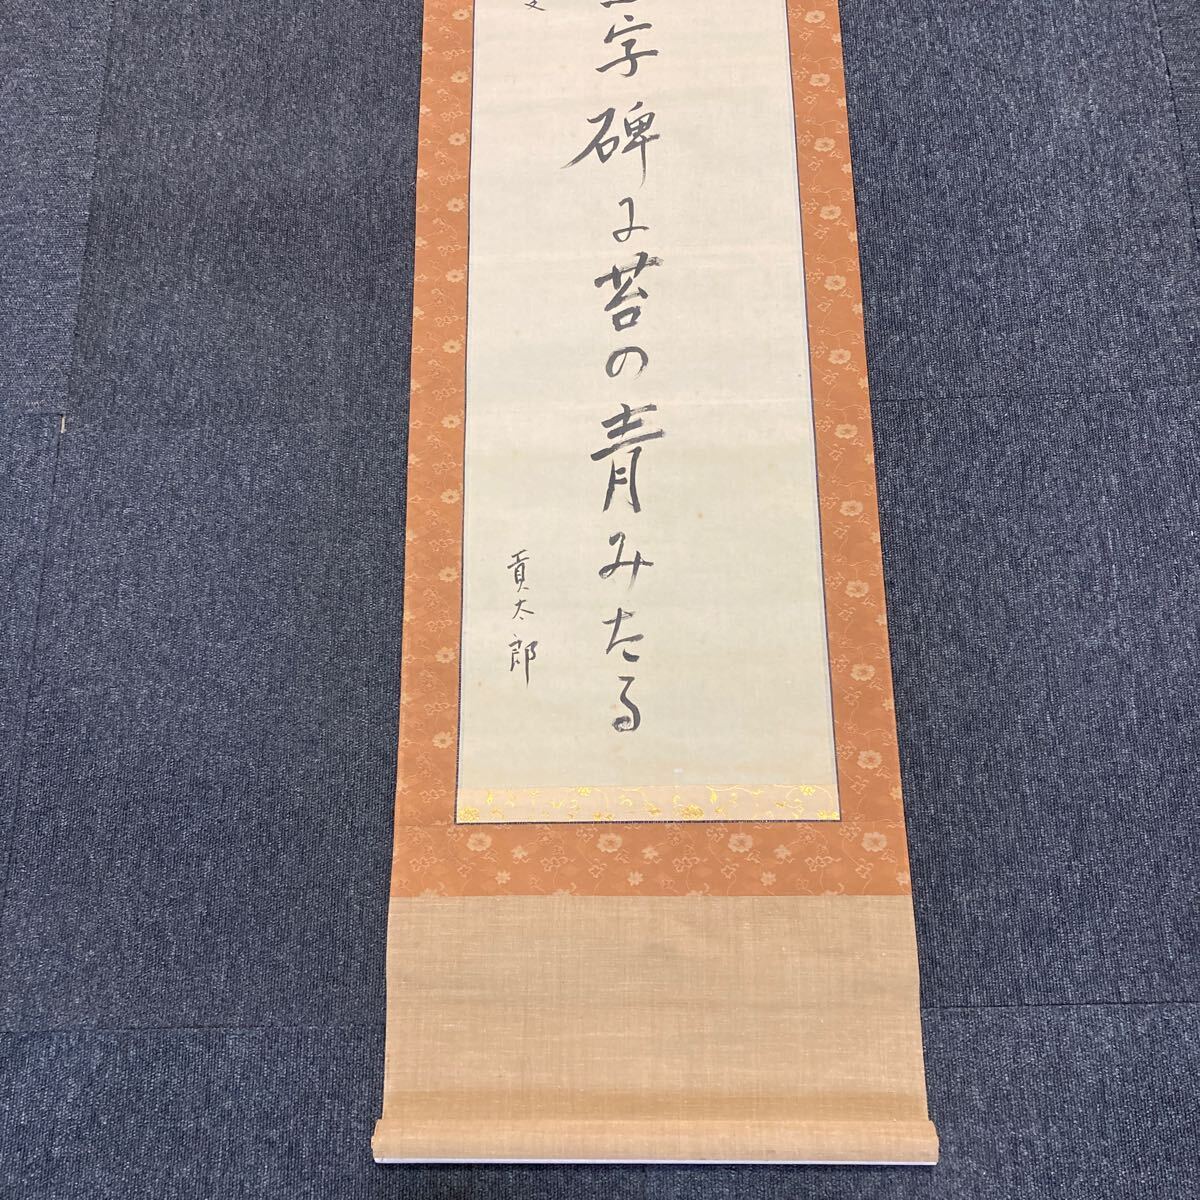 字碑に苔の青みたる
貢太郎